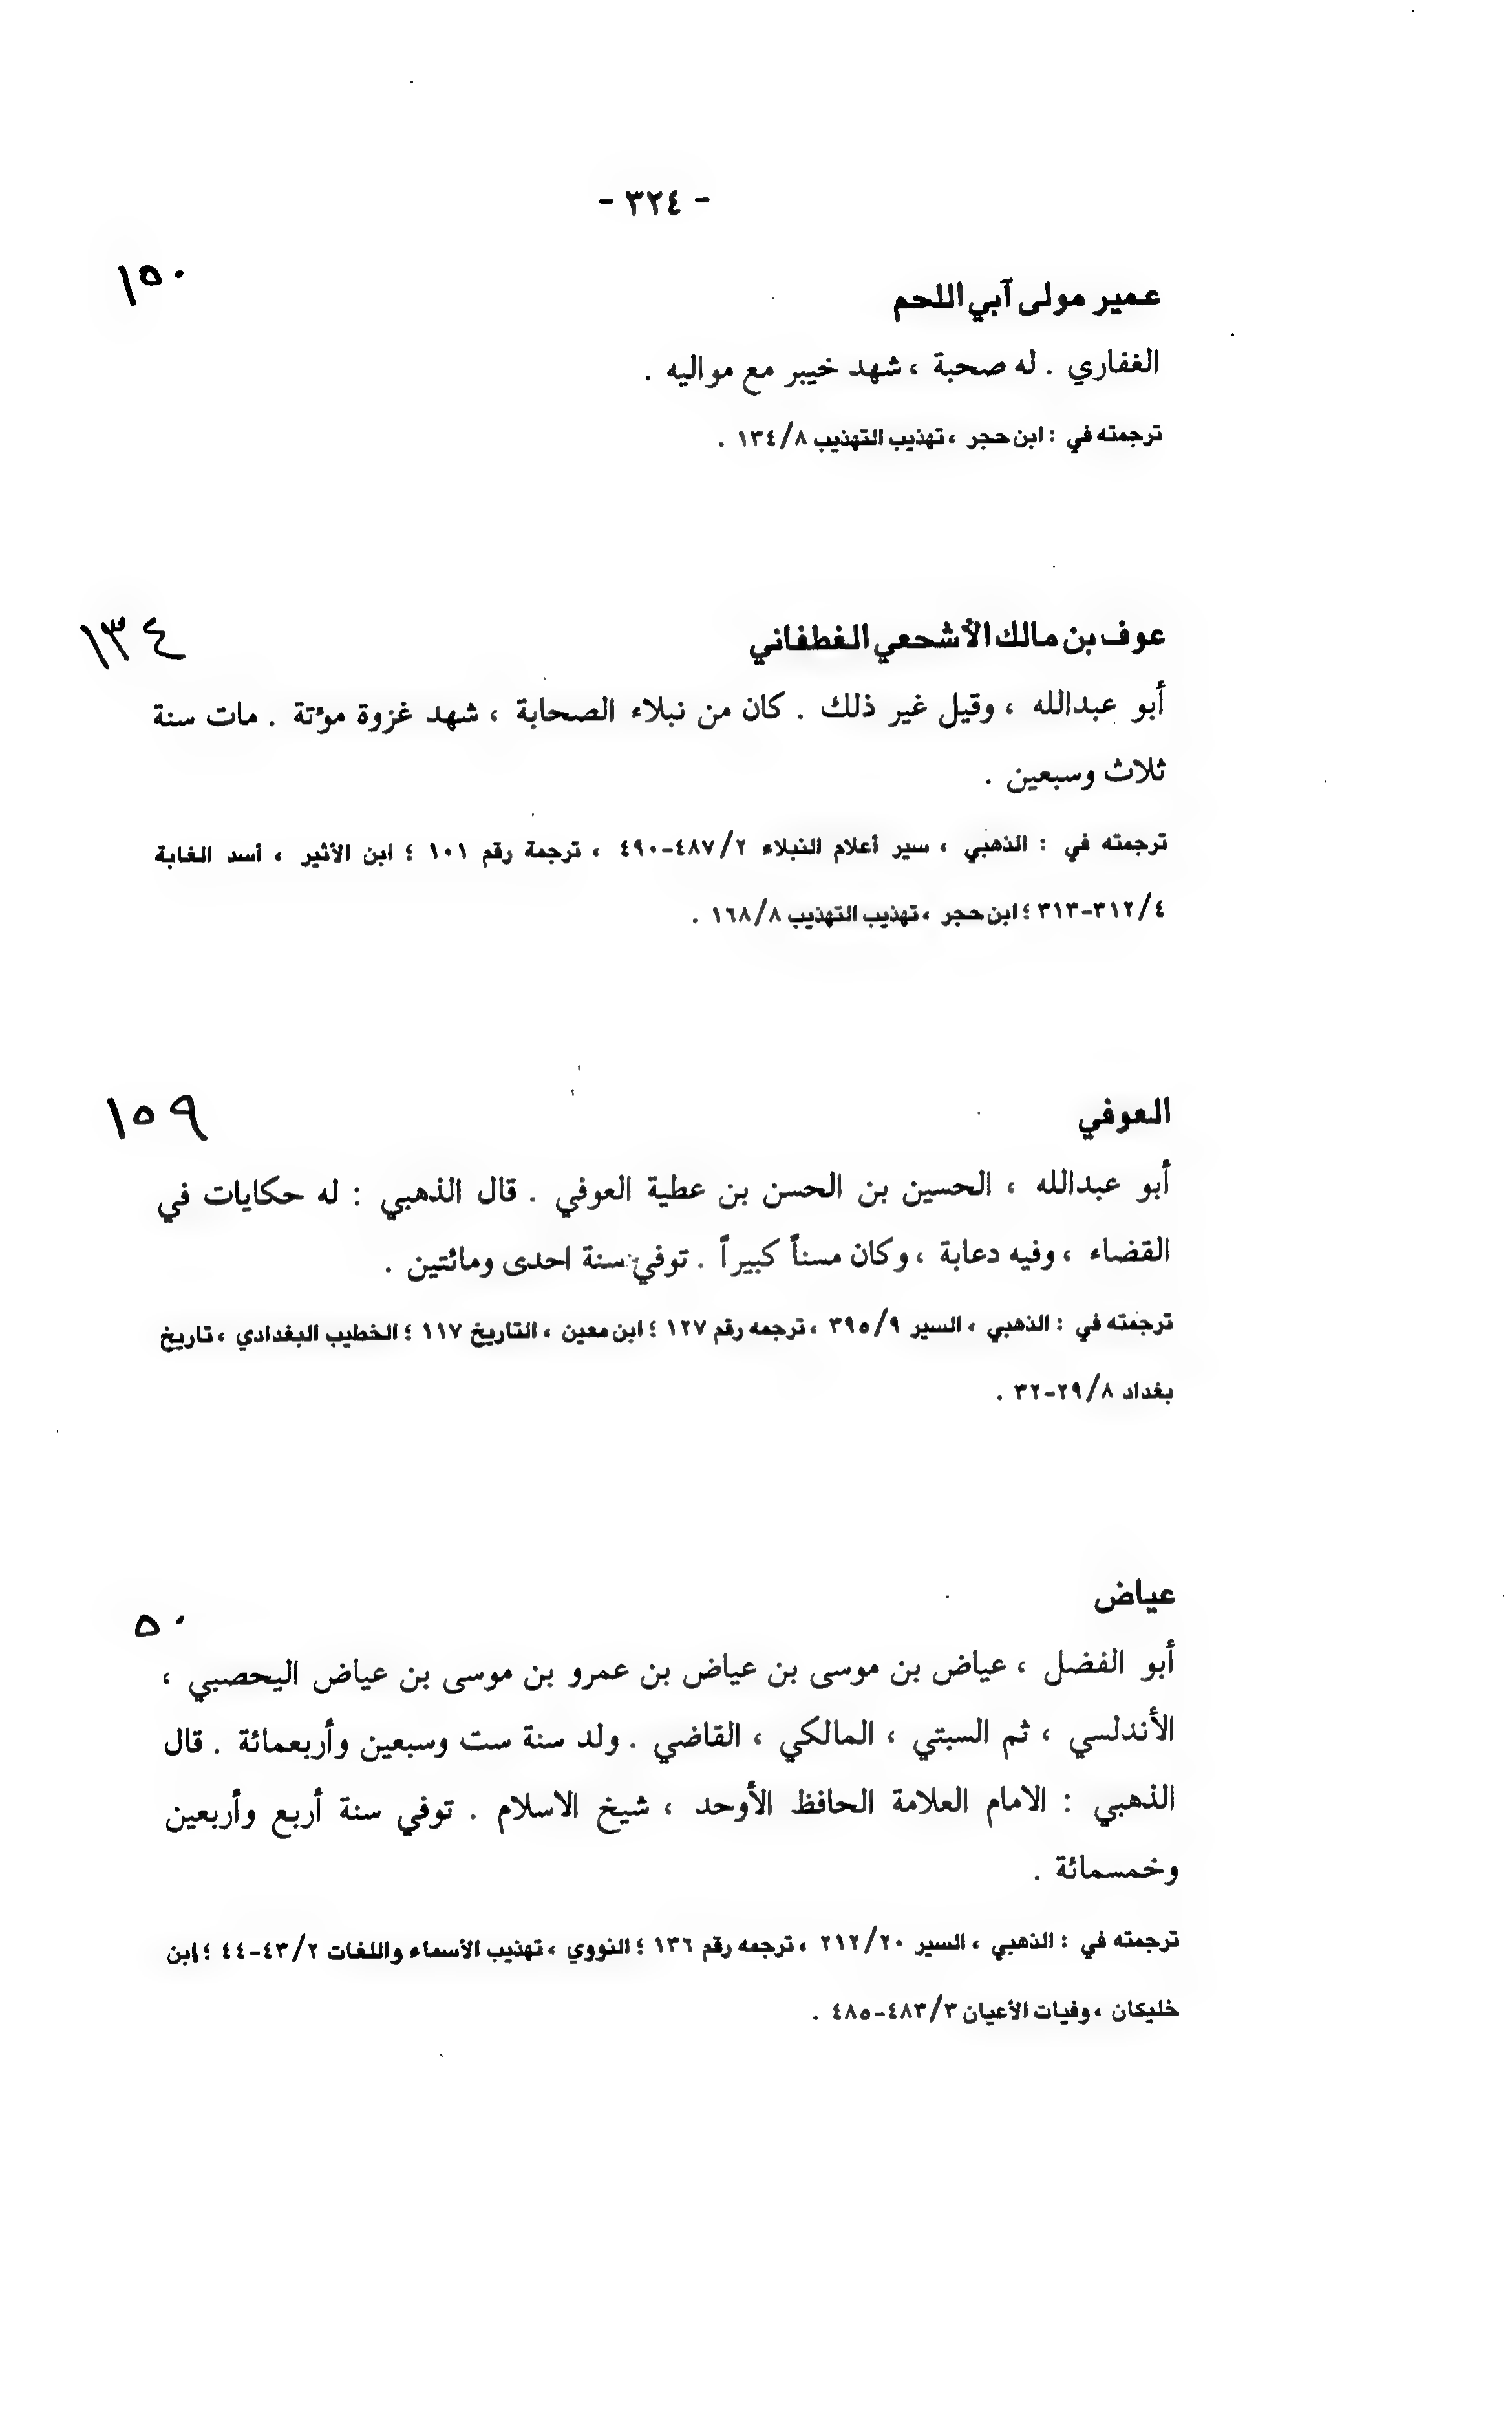 - ٣٢٤ -
١٥٠
عمير مولى آبي اللحم
الغفاري . له صحبة ، شهد خيبر مع مواليه .
ترجمته في : ابن حجر ، تهذيب التهذيب ٨/١٣٤ .
١٣٤
عوف بن مالك الأشجعي الغطفاني
أبو عبدالله ، وقيل غير ذلك . كان من نبلاء الصحابة ، شهد غزوة مؤتة . مات سنة
ثلاث وسبعين .
ترجمته في : الذهبي ، سير أعلام النبلاء ٢/٤٨٧-٤٩٠ ، ترجمة رقم ١٠١ ؛ ابن الأثير ، أسد الغابة
٤/٣١٢-٣١٣ ؛ ابن حجر ، تهذيب التهذيب ٨/١٦٨ .
١٥٩
العوفي
أبو عبدالله ، الحسين بن الحسن بن عطية العوفي . قال الذهبي : له حكايات في
القضاء ، وفيه دعابة ، وكان مسناً كبيراً . توفي سنة احدى ومائتين .
ترجمته في : الذهبي ، السير ٩/٣٩٥ ، ترجمه رقم ١٢٧ ؛ ابن معين ، التاريخ ١١٧ ؛ الخطيب البغدادي ، تاريخ
بغداد ٨/٢٩-٣٢ .
٥٠
عياض
أبو الفضل ، عياض بن موسى بن عياض بن عمرو بن موسى بن عياض اليحصبي ،
الأندلسي ، ثم السبتي ، المالكي ، القاضي . ولد سنة ست وسبعين وأربعمائة . قال
الذهبي : الامام العلامة الحافظ الأوحد ، شيخ الاسلام . توفي سنة أربع وأربعين
وخمسمائة .
ترجمته في : الذهبي ، السير ٢٠/٢١٢ ، ترجمه رقم ١٣٦ ؛ النووي ، تهذيب الأسماء واللغات ٢/٤٣-٤٤ ؛ إبن
خليكان ، وفيات الأعيان ٣/٤٨٣-٤٨٥ .